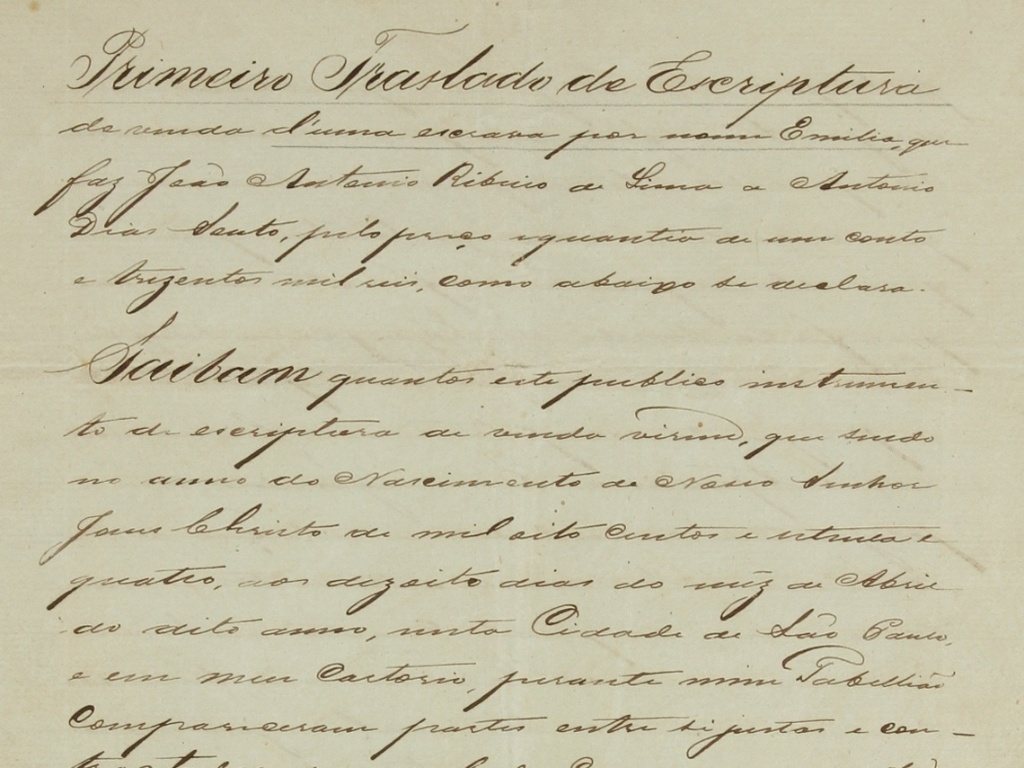 Primeiro Traslado de Escriptura
de venda d'uma escrava por nome Emilia, que
faz João Antonio Ribeiro de Lima a Antonio
Dias Souto, pelo preço e quantia de um conto
e trezentos mil reis, como abaixo se declara.
Saibam quantos este publico instrumen-
to de escriptura de venda virem, que sendo
no anno do Nascimento de Nosso Senhor
Jesus Christo de mil oito centos e setenta e
quatro, aos dezoito dias do mez de Abril
do dito anno, nesta Cidade de São Paulo,
e em meu Cartorio, perante mim Tabellião
Compareceram partes entre si justas e con-